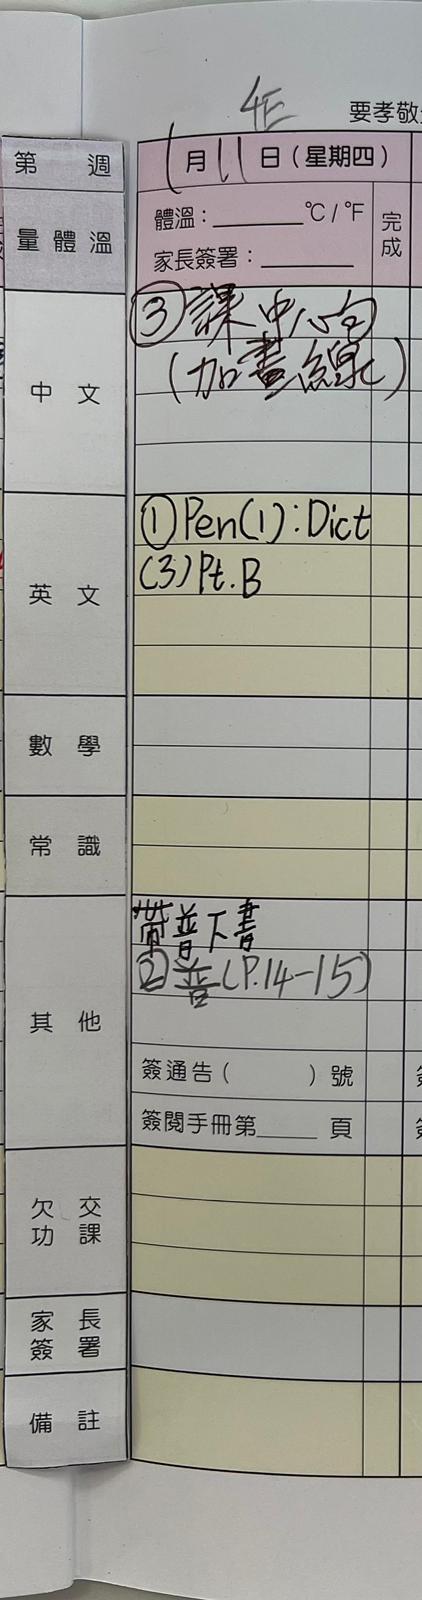 4E
要孝敬
第 週
1月11日（星期四）
量體溫
體溫：______°C / °F
家長簽署：______
完成
中文
③課中心句
（加畫線）
英文
①Pen(1):Dict
(3)Pt.B
數學
常識
其他
帶普下書
②普(P.14-15)
簽通告（ ）號
簽閱手冊第____頁
欠交功課
家長簽署
備註